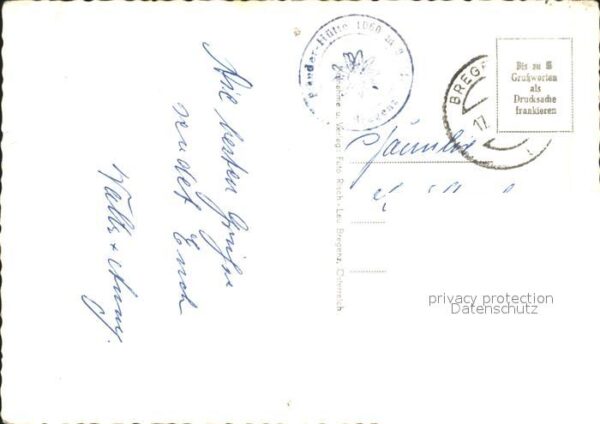 Die besten Grüße
sendet Euch
Walter + Anny.
Pfänder-Hütte 1060 m
Bregenz
Verlag: Foto Risch-Lau, Bregenz, Österreich
BREG
17.
Bis zu 5
Grußworten
als
Drucksache
frankieren
Familie
privacy protection
Datenschutz